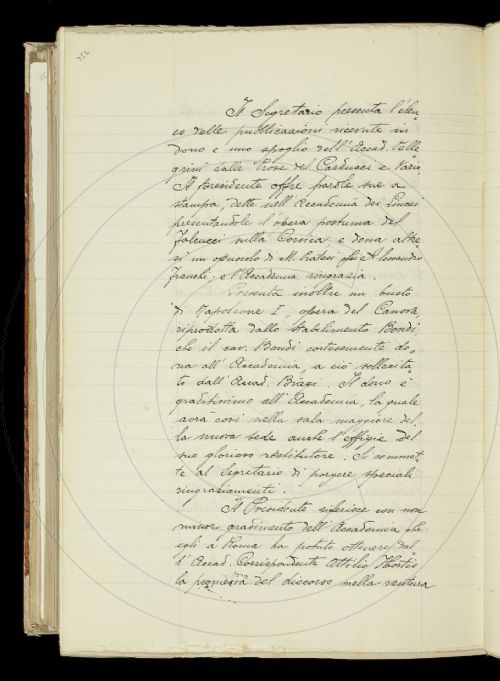 752
Il Segretario presenta l'elen-
co delle pubblicazioni ricevute in
dono e uno spoglio dell'Accad. Pelle
grini dalle Prose del Carducci e Vario
Il Presidente offre parole sue a
stampa, dette nell'Accademia dei Lincei
presentandole l'opera postuma del
Falcucci sulla Corsica, e dona altre
sì un opuscolo di M. Pratesi su Alessandro
Franchi; e l'Accademia ringrazia.
Presenta inoltre un busto
di Napoleone I, opera del Canova,
riprodotta dallo Stabilimento Bondi,
che il cav. Bondi cortesemente do-
na all'Accademia, a ciò sollecita-
to dall'Accad. Biagi. Il dono è
graditissimo all'Accademia, la quale
avrà così nella sala maggiore del-
la nuova sede anche l'effigie del
suo glorioso restitutore. Si commet-
te al Segretario di porgere speciali
ringraziamenti.
Il Presidente riferisce con non
minor gradimento dell'Accademia che
egli a Roma ha potuto ottenere dal
l'Accad. Corrispondente Attilio Hortis
la promessa del discorso nella ventura